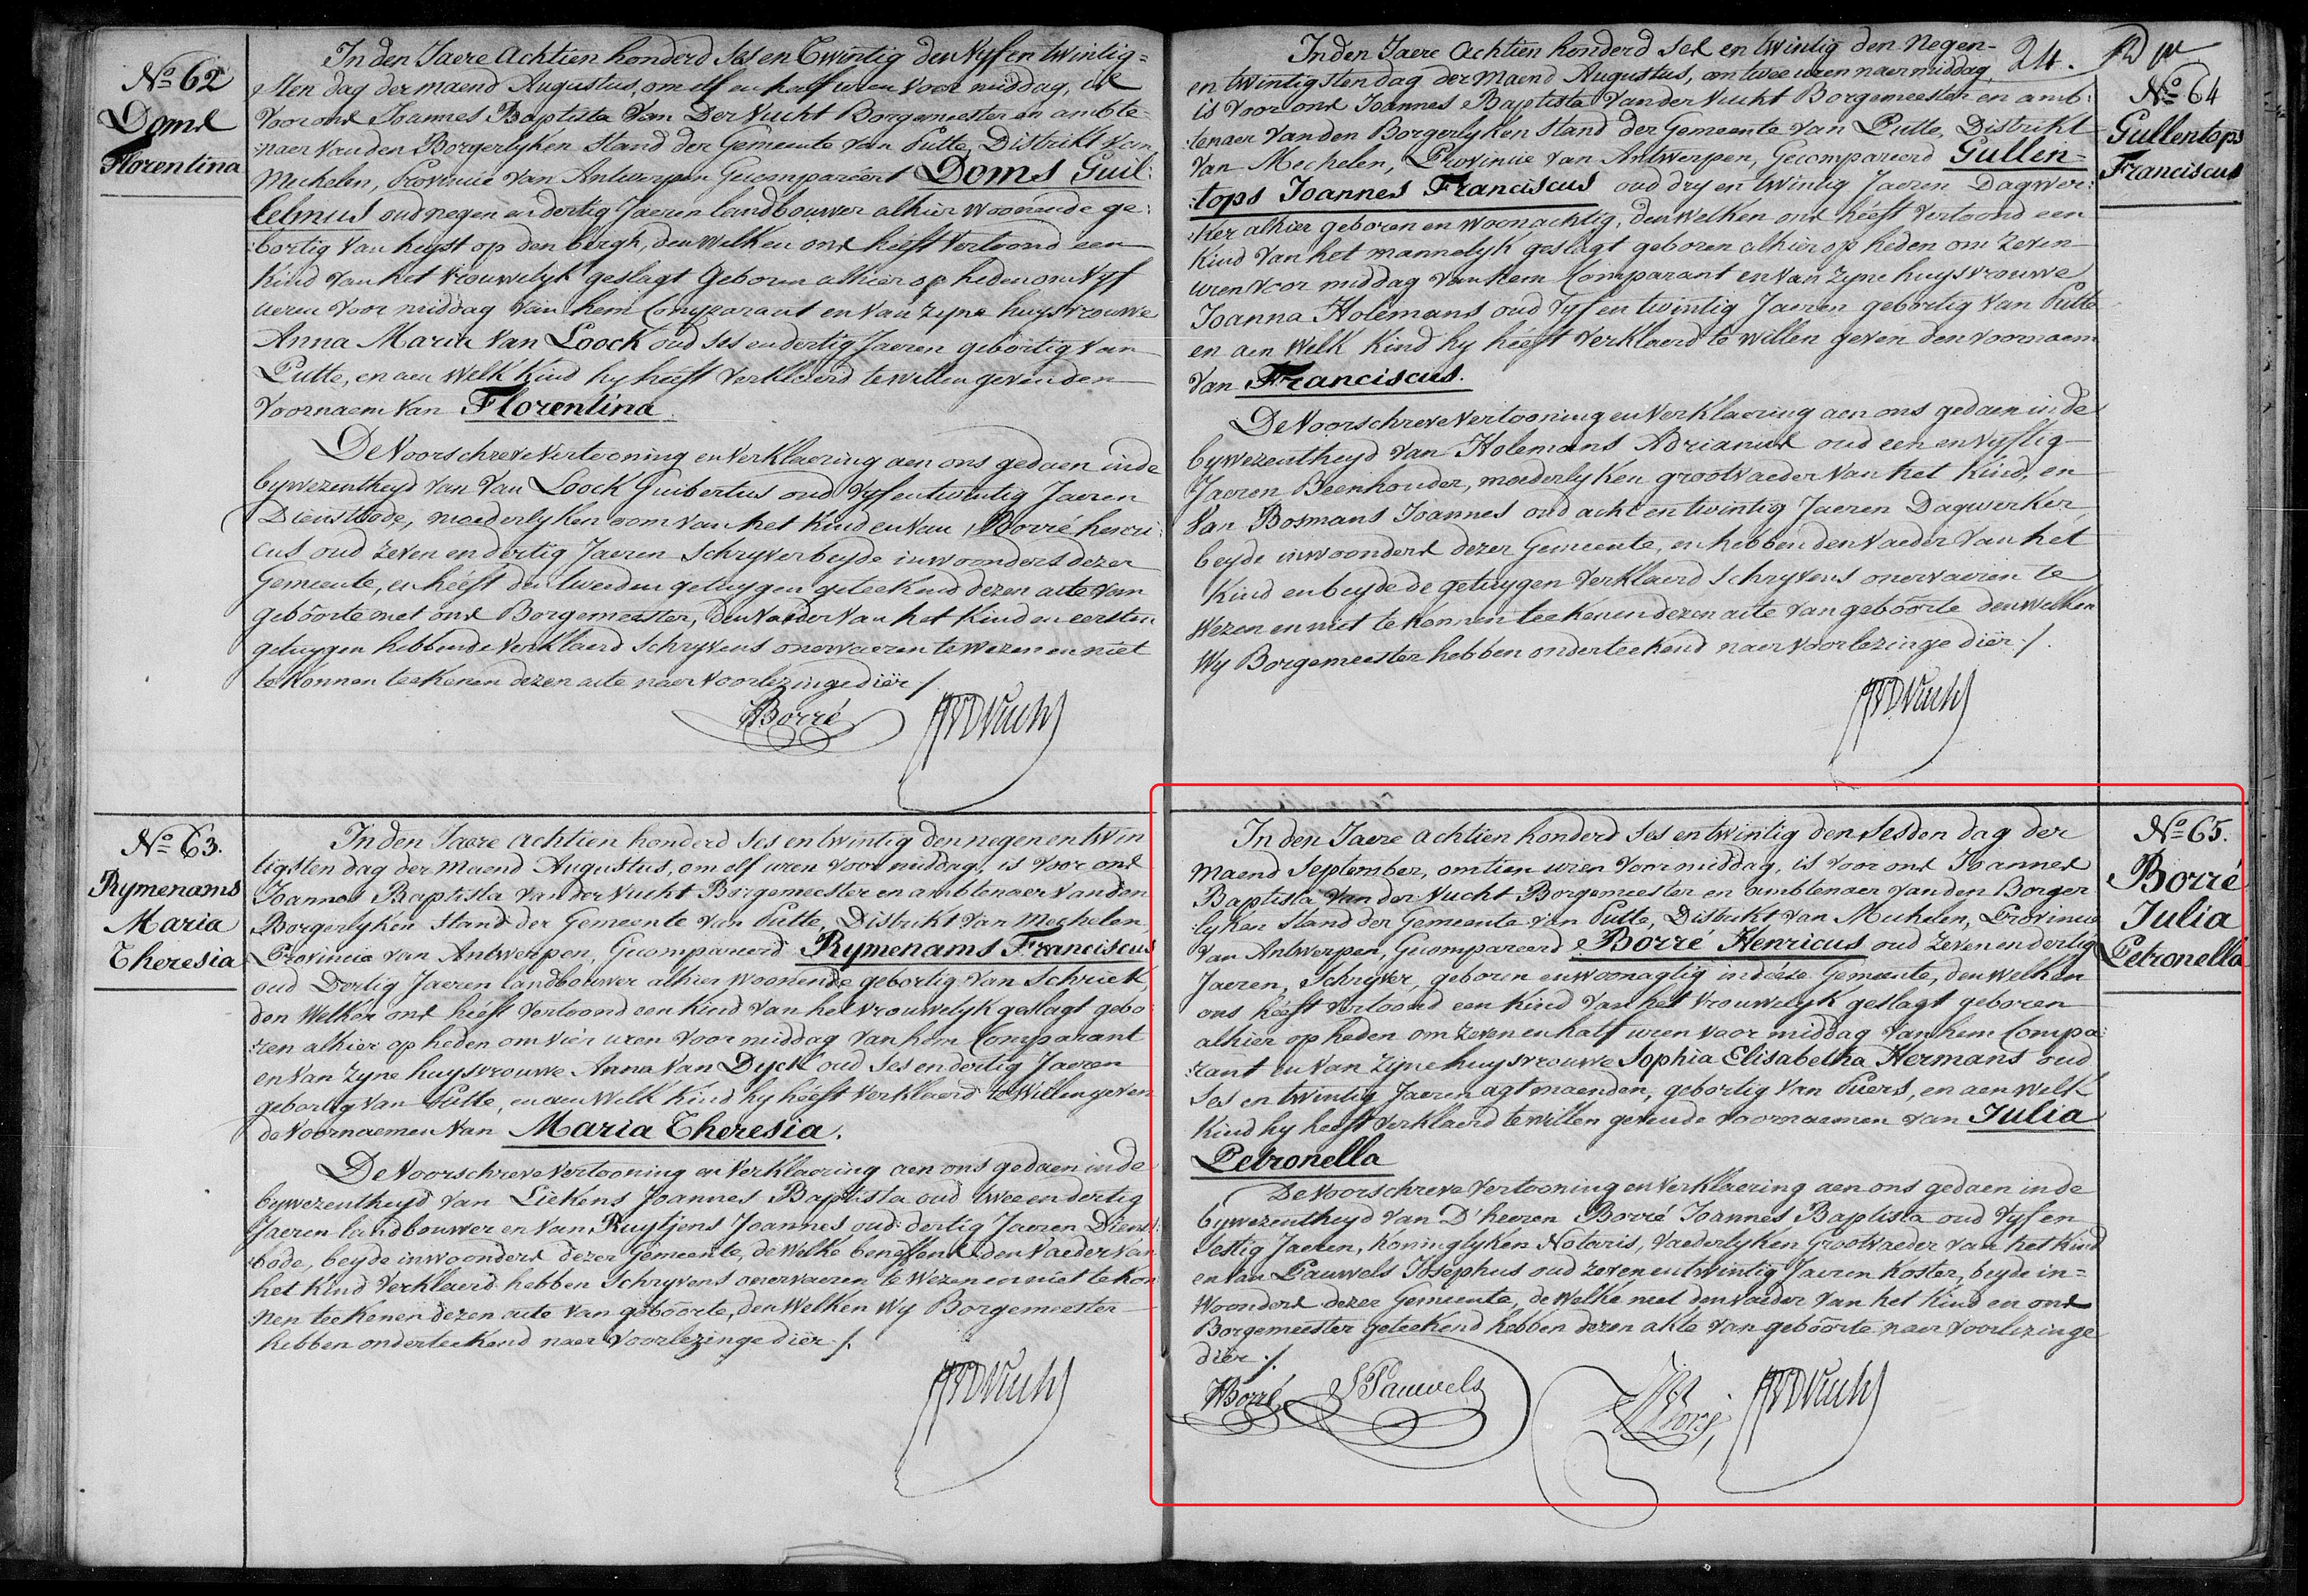 No 62
Doms
Florentina
In den Jaere Achtien honderd Ses en Twintig den Vyf en twintig=
sten dag der maend Augustus, om elf en half uren voor middag, is
Voor ons Joannes Baptista Van Der Vucht Borgemeester en ambte-
:naer van den Borgerlyken Stand der Gemeente van Putte, Distrikt van
Mechelen, Provincie van Antwerpen Gecompareert Doms Guil:
lelmus oud negen en dertig Jaeren landbouwer alhier woonende ge:
:bortig van heyst op den bergh, den welken ons heeft vertoond een
Kind van het vrouwelyk geslagt geboren alhier op heden om vyf
ueren voor middag van hem Comparant en van zyne huysvrouwe
Anna Maria Van Loock oud ses en dertig Jaeren gebortig van
Putte, en aen welk Kind hy heeft verklaerd te willen geven den
Voornaem van Florentina.
De Voorschreve vertooning en verklaering aen ons gedaen in de
bywezentheyd van Van Loock Guibertus oud vyf en twintig Jaeren
Dienstbode, moederlyken oom van het Kind en van Borré henri:
cus oud zeven en dertig Jaeren Schryver beyde inwoonders dezer
Gemeente, en heeft den tweeden getuygen geteekend dezen acte van
geboorte met ons Borgemeester, den Vaeder van het Kind en eersten
getuygen hebbende verklaerd Schryvens onervaeren te wezen en niet
te konnen teekenen dezen acte naer voorlezinge diër ./.
HBorré JBVDVucht
No 63.
Rymenams
Maria
Theresia
In den Jaere achtien honderd Ses en twintig den negen en twin
tigsten dag der Maend Augustus, om elf uren voor middag, is voor ons
Joannes Baptista van der Vucht Borgemeester en ambtenaer van den
Borgerlyken Stand der Gemeente van Putte, Distrikt van Mechelen,
Provincie van Antwerpen, Gecompareerd Rymenams Franciscus
oud Dertig Jaeren landbouwer alhier woonende gebortig van Schriek,
den Welken ons heeft vertoond een kind van het vrouwelyk geslagt gebo:
:ren alhier op heden om vier uren voor middag van hem Comparant
en van zyne huysvrouwe Anna Van Dyck oud ses en dertig Jaeren
gebortig van Putte, en aen welk Kind hy heeft verklaerd te willen geven
de voornaemen van Maria Theresia.
De Voorschreve vertooning en verklaering aen ons gedaen in de
bywezentheyd van Liekens Joannes Baptista oud twee en dertig
Jaeren landbouwer en van Ruytjens Joannes oud dertig Jaeren Dienst
:bode, beyde inwoonders dezer Gemeente, de welke beneffens den Vaeder van
het kind verklaerd hebben Schryvens onervaeren te wezen en niet te kon
nen teekenen dezen acte van geboorte, den Welken Wy Borgemeester
hebben onderteekend naer Voorlezinge diër ./.
JBVDVucht
24.
No 64
Gullentops
Franciscus
In den Jaere Achtien honderd Ses en twintig den Negen-
en twintigsten dag der Maend Augustus, om twee uren naer middag,
is voor ons Joannes Baptista Van der Vucht Borgemeester en amb:
:tenaer van den Borgerlyken Stand der Gemeente van Putte, Distrikt
Van Mechelen, Provincie van Antwerpen, Gecompareerd Gullen=
:tops Joannes Franciscus oud dry en twintig Jaeren Dagwer:
:ker alhier geboren en woonachtig, den welken ons heéft vertoond een
Kind van het mannelyk geslagt geboren alhier op heden om zeven
uren voor middag van hem Comparant en van zyne huysvrouwe
Joanna Holemans oud Vyf en twintig Jaeren gebortig van Putte
en aen welk Kind hy heéft verklaerd te willen geven den voornaem
van Franciscus.
De Voorschreve vertooning en verklaering aen ons gedaen in de
bywezentheyd van Holemans Adrianus oud een en vyftig
Jaeren Beenhouder, moederlyken grootvaeder van het Kind, en
Van Bosmans Joannes oud acht en twintig Jaeren Dagwerker,
beyde inwoonders dezer Gemeente, en hebben den Vaeder van het
Kind en beyde de getuygen verklaerd schryvens onervaeren te
Wezen en niet te konnen teekenen dezen acte van geboorte den welken
Wy Borgemeester hebben onderteekend naer voorlezinge diër ./.
JBVDVucht
No 65.
Borré
Julia
Petronella
In den Jaere achtien honderd Ses en twintig den Sesden dag der
Maend September, om tien uren voor middag, is voor ons Joannes
Baptista Van der Vucht Borgemeester en ambtenaer van den Borger
:lyken Stand der Gemeente van Putte, Distrikt van Mechelen, Provincie
van Antwerpen, Gecompareerd Borré Henricus oud zeven en dertig
Jaeren, Schryver, geboren en woonagtig in déeze Gemeente, den welken
ons heéft vertoond een Kind van het vrouwelyk geslagt geboren
alhier op heden om zeven en half uren voor middag van hem Compa:
:rant en van zyne huysvrouwe Sophia Elisabetha Hermans oud
Ses en twintig Jaeren agt maenden, gebortig van Puers, en aen welk
Kind hy heeft verklaerd te willen geven de voornaemen van Julia
Petronella
De Voorschreve vertooning en verklaering aen ons gedaen in de
bywezentheyd van D'heeren Borré Joannes Baptista oud Vyf en
Sestig Jaeren, Koninglyken Notaris, Vaederlyken Grootvaeder van het Kind
en van Pauwels Josephus oud zeven en twintig Jaeren Koster, beyde in=
Woonders dezer Gemeente, de welke met den vaeder van het kind en ons
Borgemeester geteekend hebben dezen akte van geboorte naer voorlezinge
diër ./.
HBorré JPauwels JBorré JBVDVucht